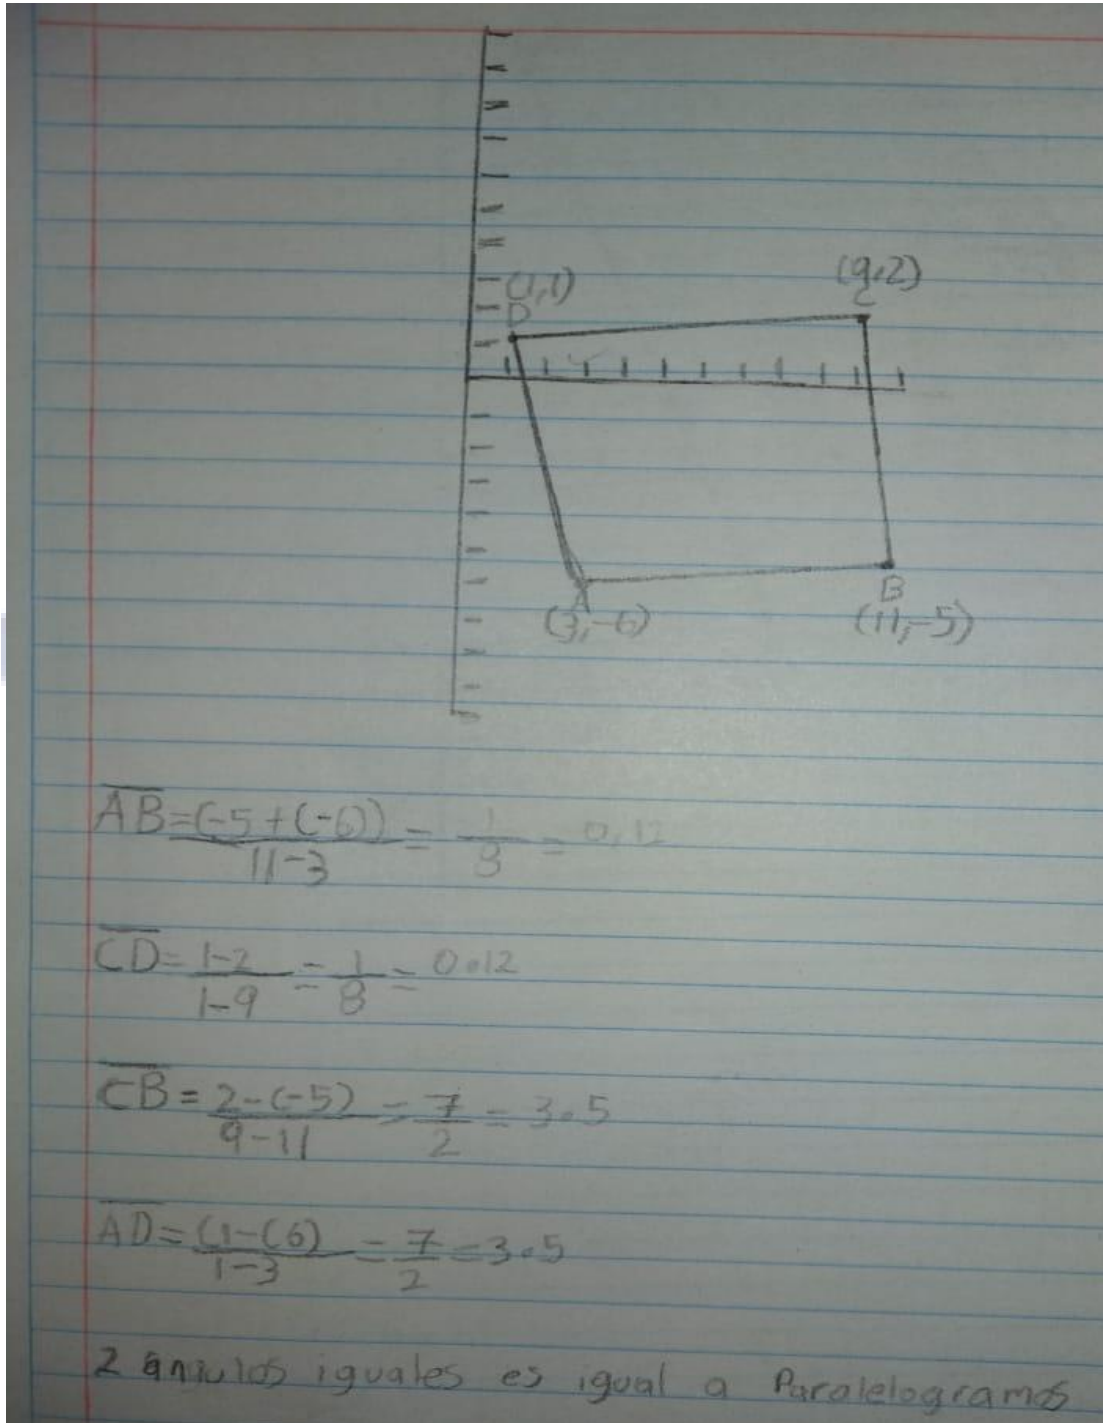 (1,1)
D
(9,2)
C
A
(3,-6)
B
(11,-5)
AB=(-5+(-6))/11-3 = 1/8 = 0,12
CD=1-2/1-9 = 1/8 = 0.12
CB=2-(-5)/9-11 = 7/2 = 3.5
AD=(1-(6)/1-3 = 7/2 = 3.5
2 ángulos iguales es igual a Paralelogramos